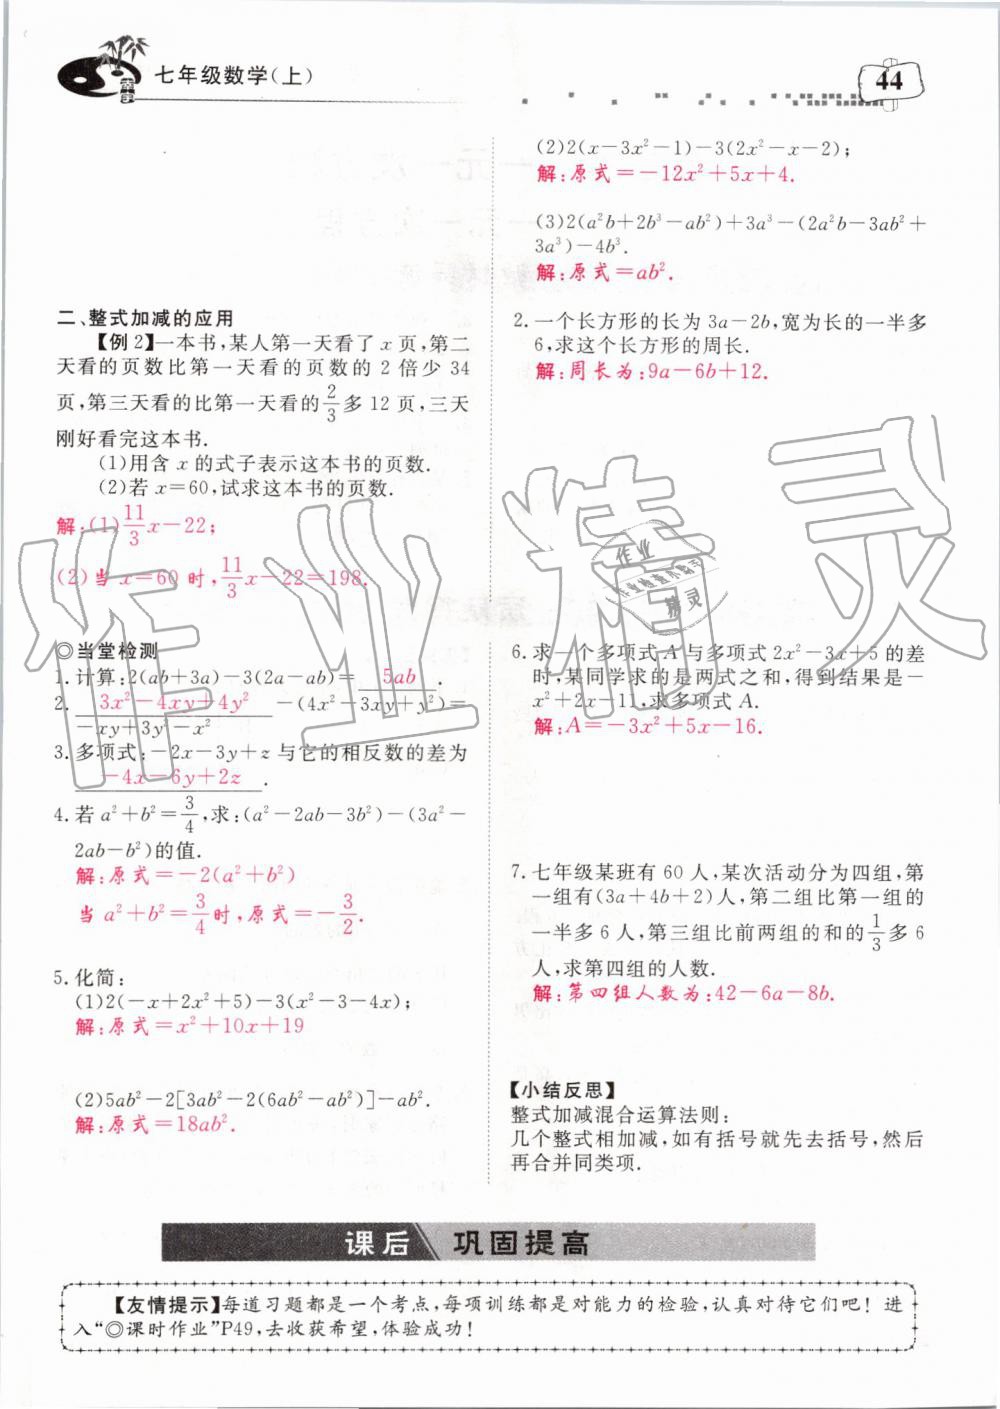 七年级数学(上)
44
二、整式加减的应用
【例2】一本书,某人第一天看了 x 页,第二
天看的页数比第一天看的页数的 2 倍少 34
页,第三天看的比第一天看的2/3多 12 页,三天
刚好看完这本书.
(1)用含 x 的式子表示这本书的页数.
(2)若 x=60,试求这本书的页数.
解:(1)11/3x-22;
(2)当 x=60 时,11/3x-22=198.
◎当堂检测
1. 计算:2(ab+3a)-3(2a-ab)= 5ab .
2. 3x²-4xy+4y² -(4x²-3xy+y²)=
-xy+3y²-x²
3. 多项式:-2x-3y+z 与它的相反数的差为
-4x-6y+2z .
4. 若 a²+b²=3/4,求:(a²-2ab-3b²)-(3a²-
2ab-b²)的值.
解:原式=-2(a²+b²)
当 a²+b²=3/4时,原式=-3/2.
5. 化简:
(1)2(-x+2x²+5)-3(x²-3-4x);
解:原式=x²+10x+19
(2)5ab²-2[3ab²-2(6ab²-ab²)]-ab².
解:原式=18ab².
(2)2(x-3x²-1)-3(2x²-x-2);
解:原式=-12x²+5x+4.
(3)2(a²b+2b³-ab²)+3a³-(2a²b-3ab²+
3a³)-4b³.
解:原式=ab².
2. 一个长方形的长为 3a-2b,宽为长的一半多
6,求这个长方形的周长.
解:周长为:9a-6b+12.
6. 求一个多项式 A 与多项式 2x²-3x+5 的差
时,某同学求的是两式之和,得到结果是-
x²+2x-11,求多项式 A.
解:A=-3x²+5x-16.
7. 七年级某班有 60 人,某次活动分为四组,第
一组有(3a+4b+2)人,第二组比第一组的
一半多 6 人,第三组比前两组的和的1/3多 6
人,求第四组的人数.
解:第四组人数为:42-6a-8b.
【小结反思】
整式加减混合运算法则:
几个整式相加减,如有括号就先去括号,然后
再合并同类项.
课后 巩固提高
【友情提示】每道习题都是一个考点,每项训练都是对能力的检验,认真对待它们吧!进
入“◎课时作业”P49,去收获希望,体验成功!
作业精灵